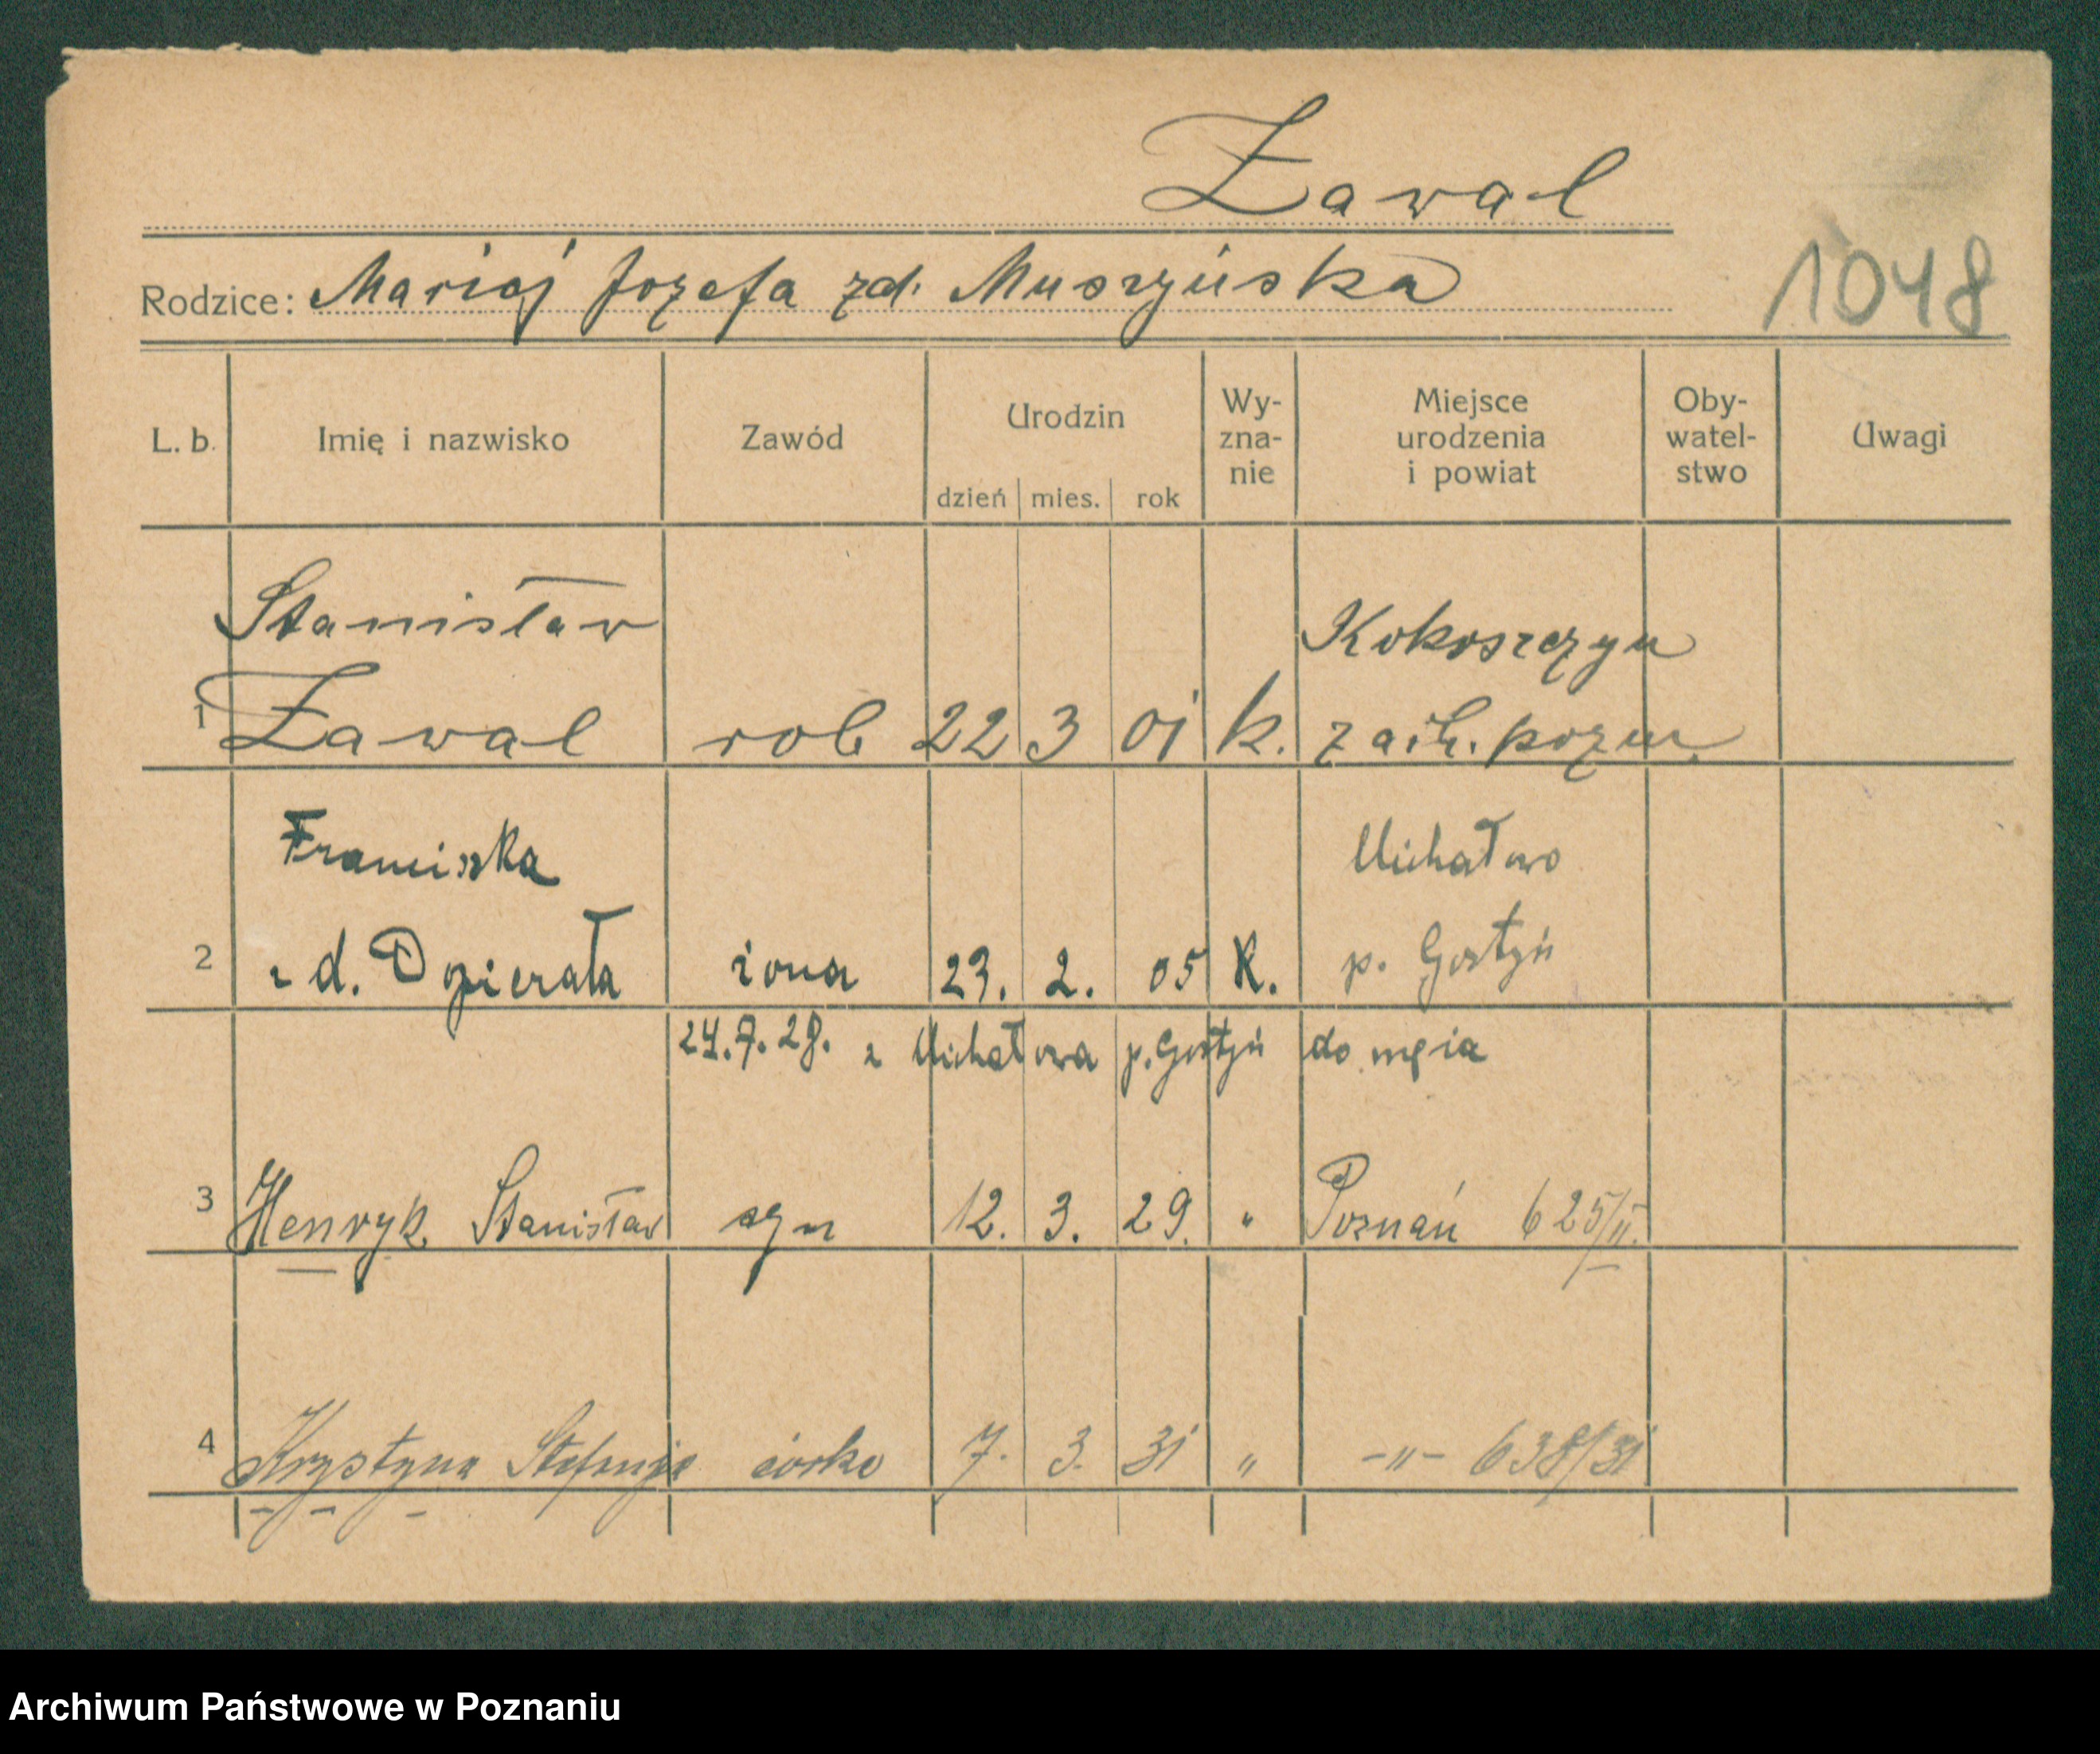 Zawal
Rodzice: Maciej Jozefa zd. Muszyńska
1048
L. b. Imię i nazwisko Zawód Urodzin dzień mies. rok Wy-zna-nie Miejsce urodzenia i powiat Oby-watel-stwo Uwagi
Stanisław Kokoszczyn
1 Zawal rob 22 3 01 k. zach. pozn.
Franciszka Michałowo
2 z d. Dopierała żona 23. 2. 05 K. p. Gostyń
24.7.28. z Michałowa p. Gostyń do męża
3 Henryk Stanisław syn 12. 3. 29. " Poznań 625/II.
4 Krystyna Stefanja córka 7. 3. 31 " -"- 638/31
Archiwum Państwowe w Poznaniu